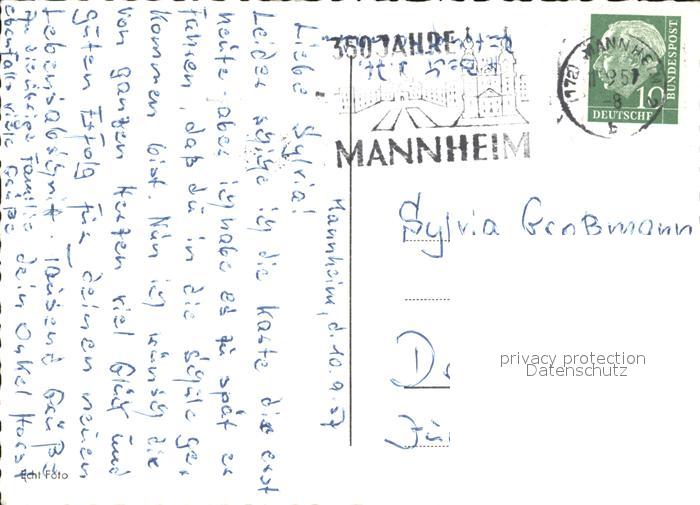 Mannheim, d. 10.9.57
Liebe Sylvia!
Leider schicke ich die Karte dir erst
heute. aber ich habe es zu spät er
fahren, daß du in die Schule ge-
kommen bist. Nun ich wünsch dir
Von ganzen Herzen viel Glück und
Guten Erfolg für deinen neuen
Lebensabschnitt. Tausend Grüße
dein Onkel Horst
ebenfalls viele Grüße
Echt Foto
350 JAHRE
MANNHEIM
MANNHEIM
(17a)
57
-8
b
10
DEUTSCHE
BUNDESPOST
Sylvia Großmann
privacy protection
Datenschutz